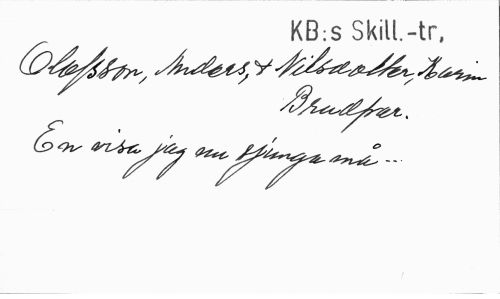 KB:s Skill.-tr,
Olofsson, Anders, & Nilsdotter, Karin
Brudpar.
En visa jag nu sjunga må --